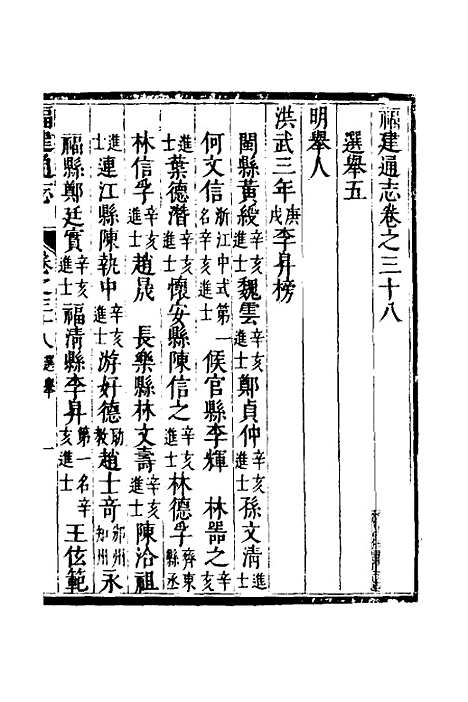 福建通志卷之三十八
選舉五
明舉人
洪武三年庚戌李昇榜
閩縣黃綬辛亥進士魏雲辛亥進士鄭貞仲辛亥進士孫文淸進士
何文信浙江中式第一名辛亥進士侯官縣李輝 林噐之辛亥進士
葉德潛辛亥進士懷安縣陳信之辛亥進士林德孚齊東縣丞
林信孚辛亥進士趙晟 長樂縣林文壽辛亥進士陳洽祖
連江縣陳執中辛亥進士游好德助教趙士竒鄁州知州永
福縣鄭廷實辛亥進士福淸縣李昇第一名辛亥進士王伭範
福建通志 卷之三十八 選舉 一